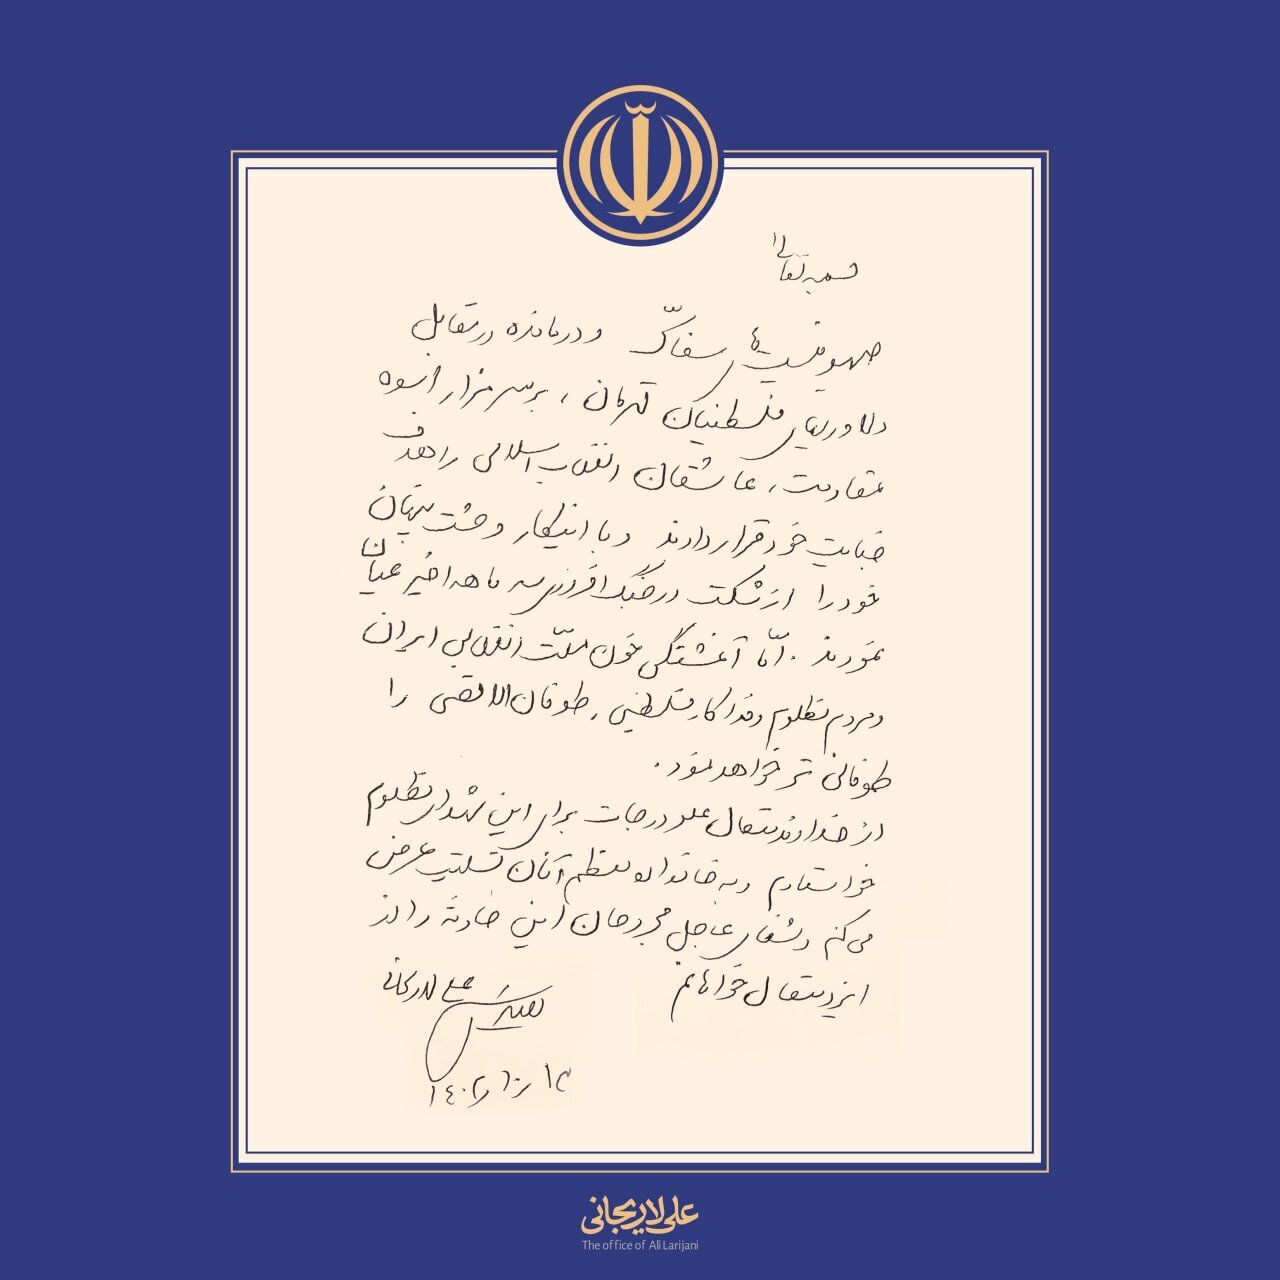 بسمه تعالی
صهیونیست‌های سفاک و درمانده در مقابل
دلاوریهای فلسطینیان قهرمان، بر سر مزار اسوه
مقاومت، عاشقان انقلاب اسلامی را هدف
خباثت خود قرار دادند و با اینکار وحشت پنهان
خود را از شکست در جنگ افروزی سه ماهه اخیر عیان
نمودند. امّا آغشتگی خون ملّت انقلابی ایران
و مردم مظلوم و فداکار فلسطین، طوفان الاقصی را
طوفانی تر خواهد نمود.
از خداوند متعال علو درجات برای این شهدای مظلوم
خواستارم و به خانواده معظم آنان تسلیت عرض
می کنم و شفای عاجل مجروحان این حادثه را از
ایزد متعال خواهانم
علی لاریجانی
۱۴۰۲/۱۰/۱۴
علی لاریجانی
The office of Ali Larijani